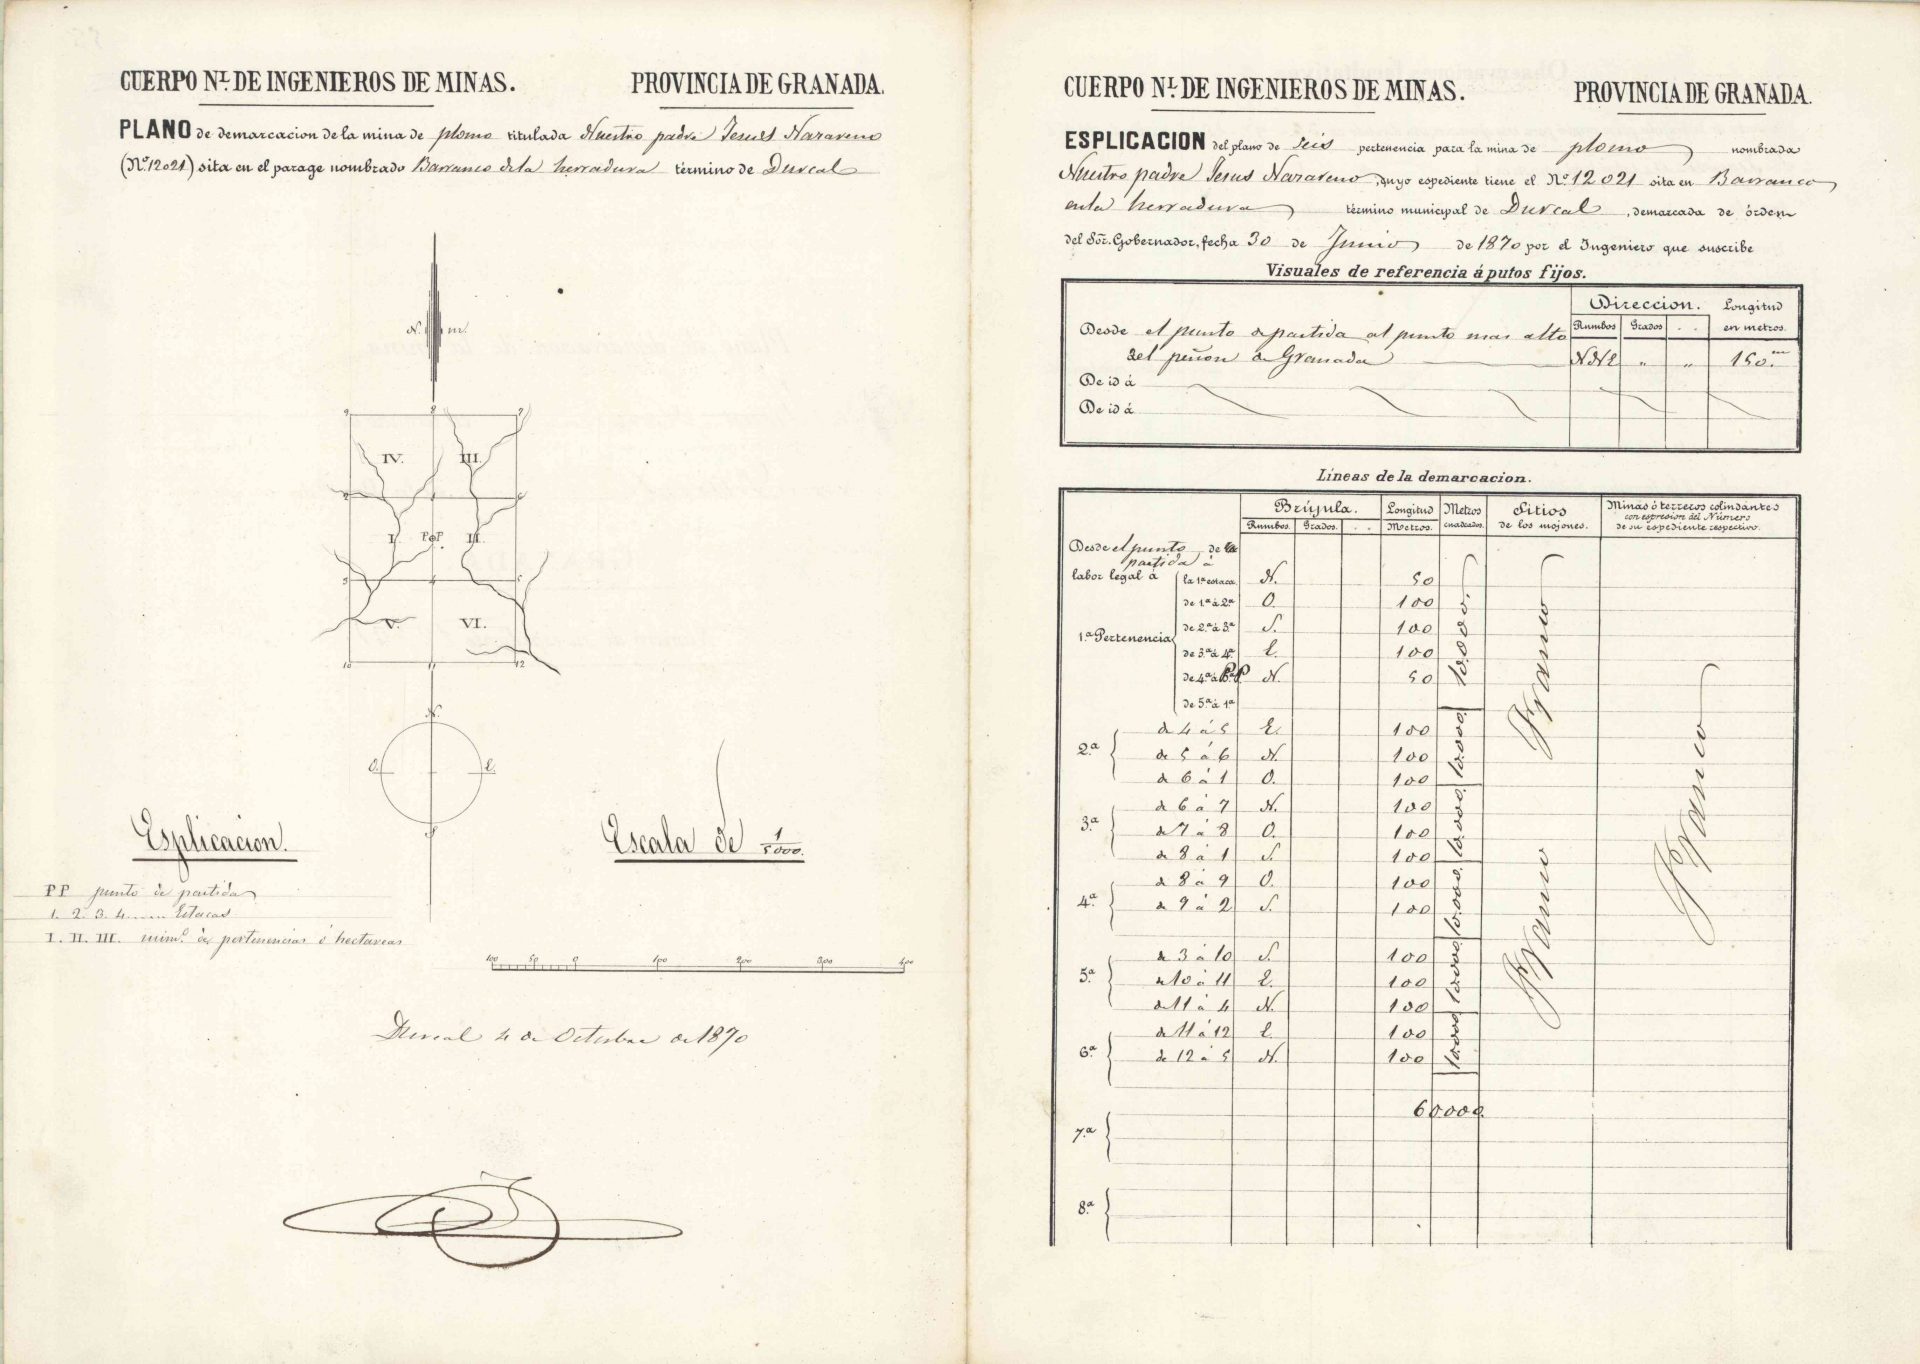 CUERPO N.L DE INGENIEROS DE MINAS. PROVINCIA DE GRANADA.
PLANO de demarcacion de la mina de plomo titulada Nuestro padre Jesus Nazareno
(N.º 12021) sita en el parage nombrado Barranco de la herradura término de Durcal
N. m.
9 8 7
IV. III.
2 1 6
I. P.P. II.
3 4 5
V. VI.
10 11 12
N.
O. E.
S.
Esplicacion. Escala de 1/5000.
P P punto de partida
1. 2. 3. 4...... Estacas
I. II. III. núm.º de pertenencias ó hectareas
100 50 0 100 200 300 400
Durcal 4 de Octubre de 1870
CUERPO N.L DE INGENIEROS DE MINAS. PROVINCIA DE GRANADA.
ESPLICACION del plano de seis pertenencia para la mina de plomo nombrada
Nuestro padre Jesus Nazareno, cuyo espediente tiene el N.º 12021 sita en Barranco
en la herradura término municipal de Durcal, demarcada de órden
del Sor. Gobernador, fecha 30 de Junio de 1870 por el Ingeniero que suscribe
Visuales de referencia á putos fijos.
Direccion. Longitud
Rumbos Grados . . en metros.
Desde el punto de partida al punto mas alto
del peñon de Granada NNE " " 150.m
De id á
De id á
Líneas de la demarcacion.
Brújula. Longitud Metros Sitios Minas ó terreros colindantes
con espresion del Número
Rumbos. Grados. . . Metros. cuadrados. de los mojones. de su espediente respectivo.
Desde el punto de
partida á
labor legal á la 1.ª estaca N. 50
de 1.ª á 2.ª O. 100
de 2.ª á 3.ª S. 100
1.ª Pertenencia de 3.ª á 4.ª E. 100 10.000.
de 4.ª á P.P. N. 50
de 5.ª á 1.ª
de 4 á 5 E. 100
2.ª de 5 á 6 N. 100 10.000.
de 6 á 1 O. 100
de 6 á 7 N. 100
3.ª de 7 á 8 O. 100 10.000.
de 8 á 1 S. 100
de 8 á 9 O. 100
4.ª de 9 á 2 S. 100 10.000.
de 3 á 10 S. 100
5.ª de 10 á 11 E. 100 10.000.
de 11 á 4 N. 100
de 11 á 12 E. 100
6.ª de 12 á 5 N. 100 10.000
60.000.
7.ª
8.ª
Franco
Franco
Franco